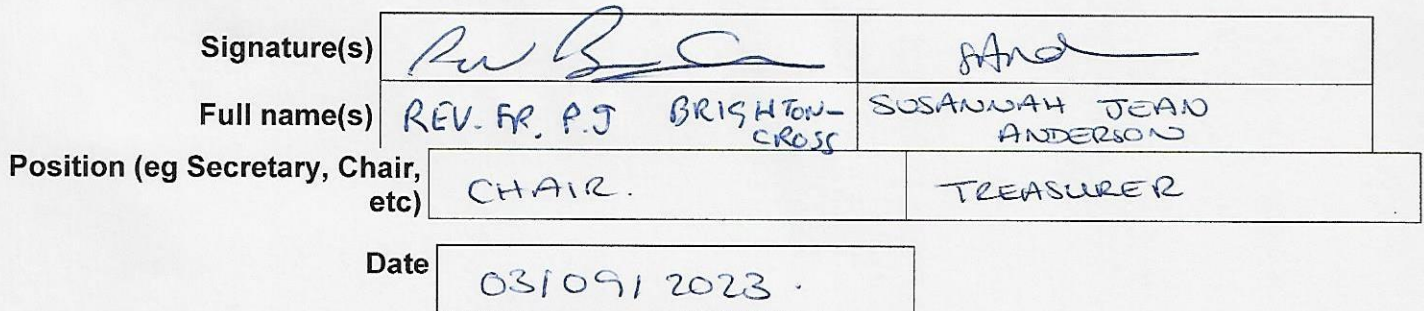 Signature(s)
Full name(s) REV. FR. P.J BRIGHTON- SUSANNAH JEAN
CROSS ANDERSON
Position (eg Secretary, Chair, CHAIR. TREASURER
etc)
Date 03/09/2023.